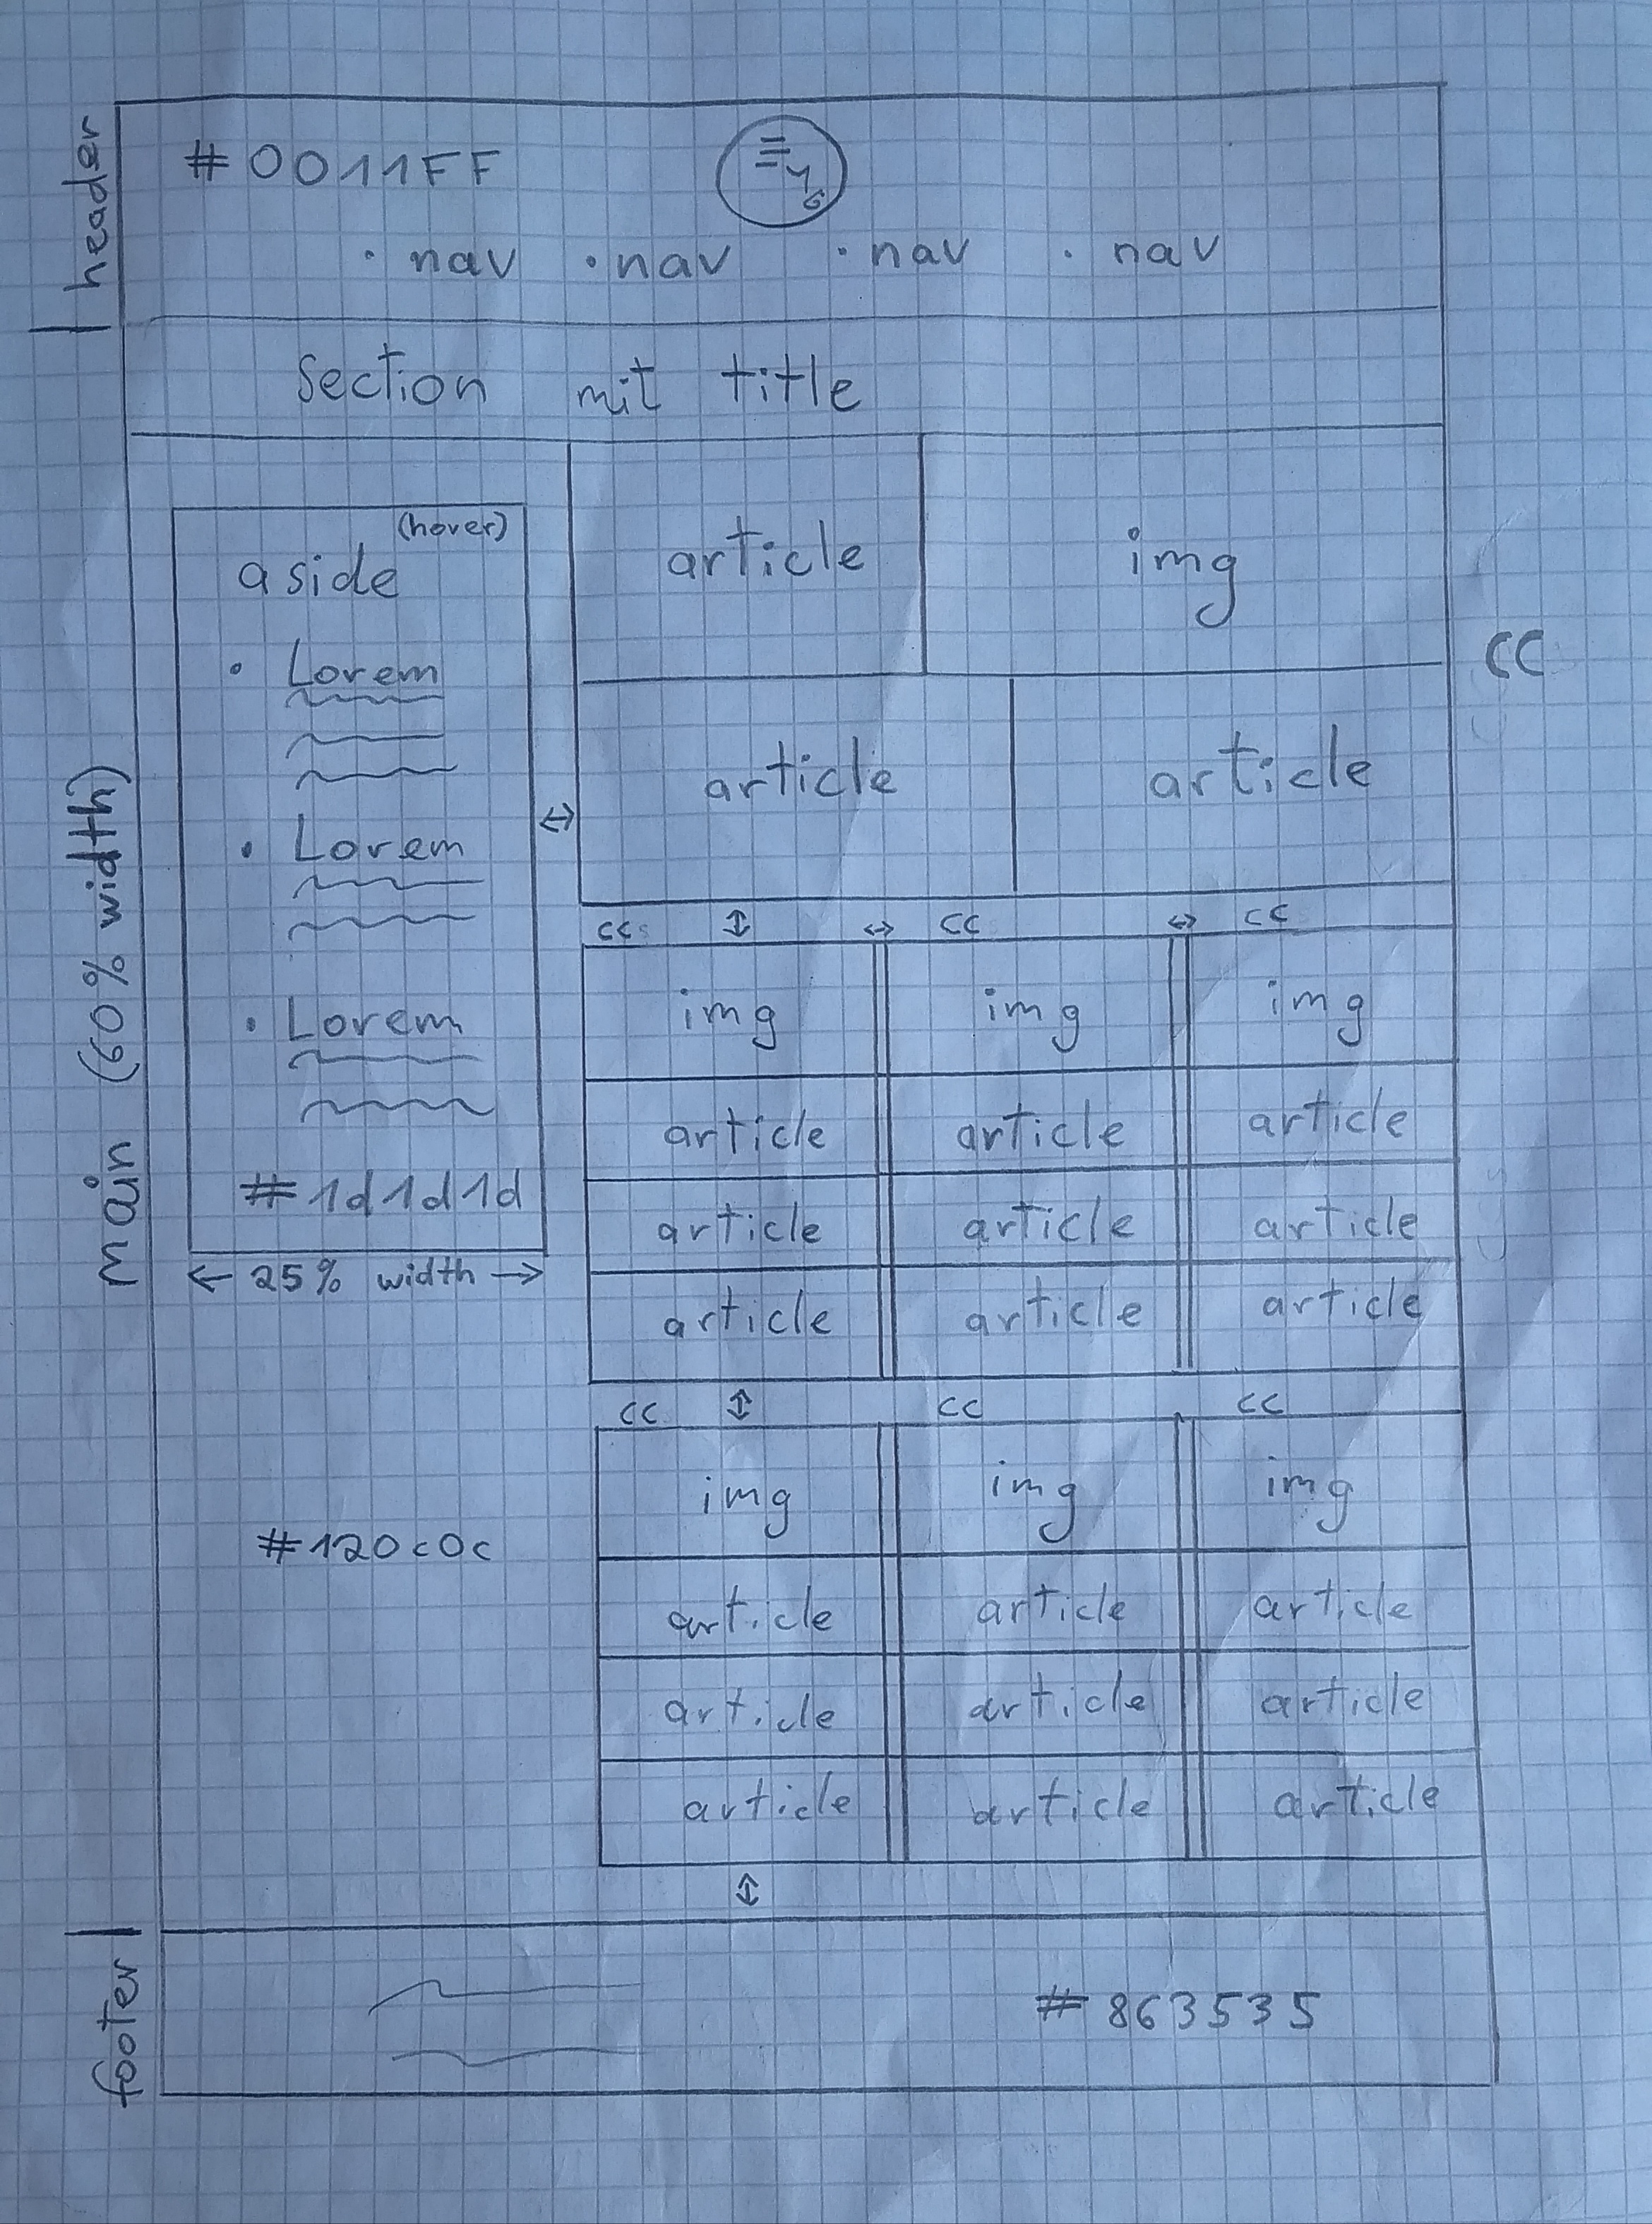 header
#0011FF
• nav • nav • nav • nav
Section mit title
main (60% width)
(hover)
aside
• Lorem
• Lorem
• Lorem
#1d1d1d
← 25% width →
article img
CC
article article
cc cc cc
img img img
article article article
article article article
article article article
cc cc cc
img img img
article article article
article article article
article article article
#120c0c
footer
#863535